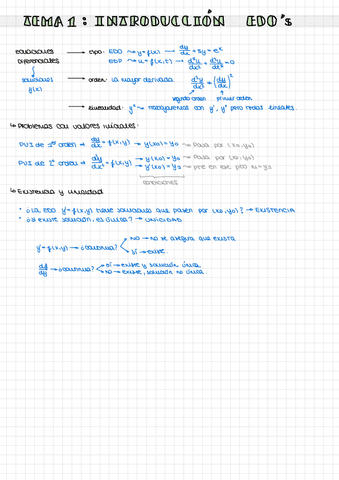 TEMA 1: INTRODUCCIÓN EDO's
ecuaciones diferenciales → tipo: EDO → y=f(x) → dy/dx + 5y = e^x
EDP → u=f(x,t) →
soluciones f(x)
→ orden: la mayor derivada.
segundo orden primer orden
→ linealidad: y^n → trabajaremos con y', y'' pero todas lineales.
↳ Problemas con valores iniciales:
PVI de 1er orden → dy/dx = f(x,y) → y(x0)=y0 → Pasa por (x0,y0)
PVI de 2º orden → = f(x,y) → y(x0)=y0 → Pasa por (x0,y0)
y'(x0)=y1 → pte en ese pto es = y1
CONDICIONES
↳ Existencia y unicidad
· ¿La EDO y'=f(x,y) tiene soluciones que pasen por (x0,y0)? → EXISTENCIA
· ¿Si existe solución, es única? → UNICIDAD
y'=f(x,y) → ¿continua? NO → no se asegura que exista
SÍ → existe
→ ¿continua? SÍ → existe y solución única
NO → existe, solución no única.